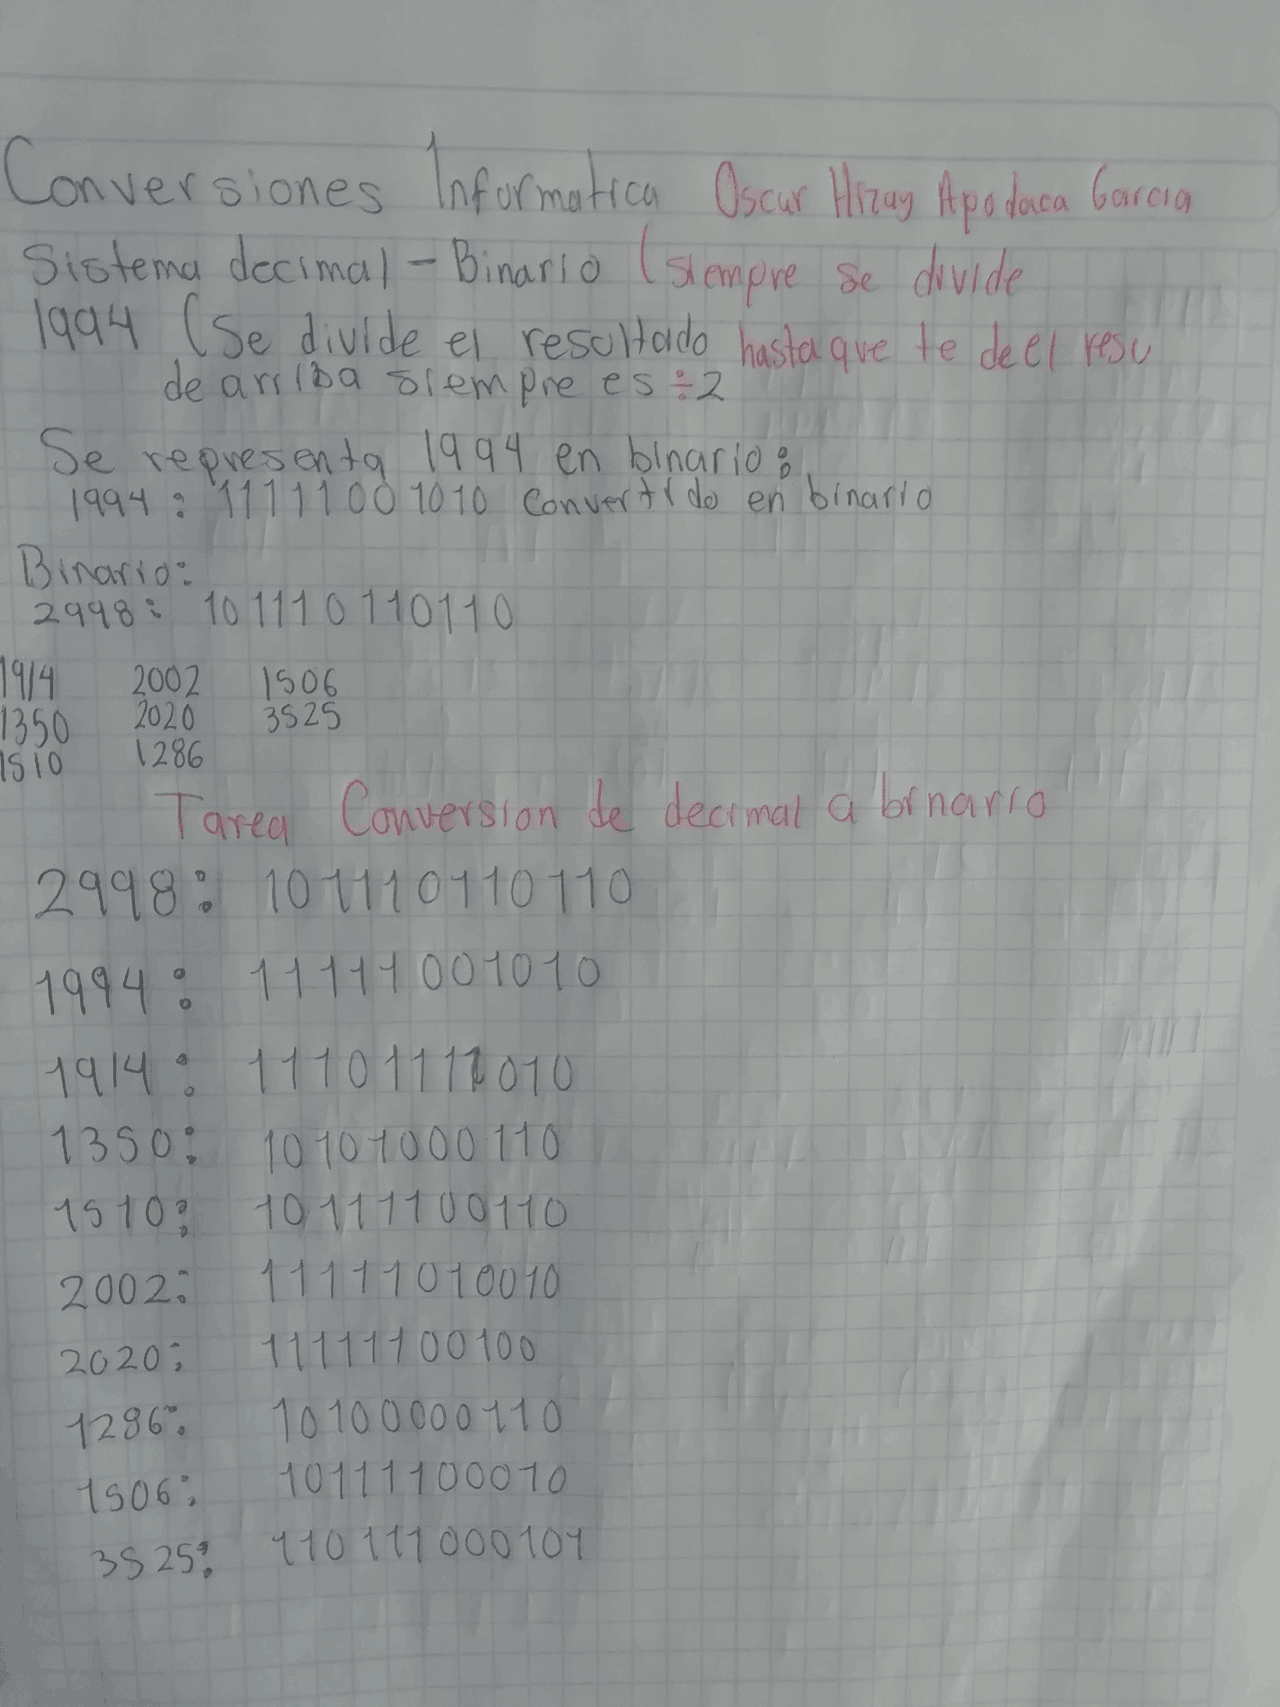 Conversiones Informatica Oscar Hizay Apodaca Garcia
Sistema decimal - Binario (siempre se divide
1994 (Se divide el resultado hasta que te de el resu
de arriba siempre es ÷2
Se representa 1994 en binario:
1994: 11111001010 Convertido en binario
Binario:
2998: 101110110110
1914 2002 1506
1350 2020 3525
1510 1286
Tarea Conversion de decimal a binario
2998: 101110110110
1994: 11111001010
1914: 11101111010
1350: 10101000110
1510: 10111100110
2002: 11111010010
2020: 11111100100
1286: 10100000110
1506: 10111100010
3525: 110111000101